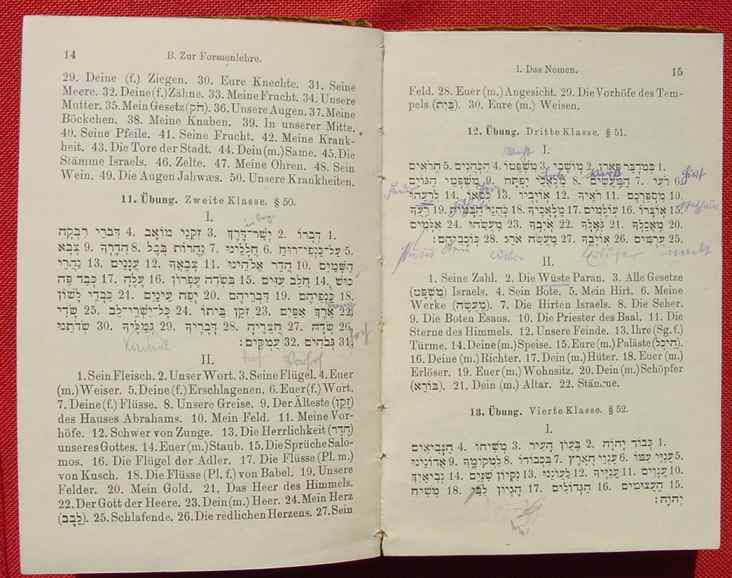 14
B. Zur Formenlehre.
29. Deine (f.) Ziegen. 30. Eure Knechte. 31. Seine
Meere. 32. Deine (f.) Zähne. 33. Meine Frucht. 34. Unsere
Mutter. 35. Mein Gesetz (חֹק). 36. Unsere Augen. 37. Meine
Böckchen. 38. Meine Knaben. 39. In unserer Mitte.
40. Seine Pfeile. 41. Seine Frucht. 42. Meine Krank-
heit. 43. Die Tore der Stadt. 44. Dein (m.) Same. 45. Die
Stämme Israels. 46. Zelte. 47. Meine Ohren. 48. Sein
Wein. 49. Die Augen Jahwæs. 50. Unsere Krankheiten.
11. Übung. Zweite Klasse. § 50.
I.
1 דְּבָרוֹ 2 יְשַׁר־דֶּרֶךְ 3 זִקְנֵי מוֹאָב 4 דִּבְרֵי רִבְקָה
5 עַל־כַּנְפֵי־רוּחַ 6 חֲלָלֵינוּ 7 נַהֲרוֹת בָּבֶל 8 הֲדָרָהּ 9 צְבָא
הַשָּׁמַיִם 10 הֲדַר אֱלֹהֵינוּ 11 צְבָאֲךָ 12 עֲנָנִים 13 נַהֲרֵי
כוּשׁ 14 חֲלֵב עִזִּים 15 בִּשְׂדֵה עֶפְרוֹן 16 עָלֶהָ 17 כְּבַד פֶּה
18 כַּנְפֵיהֶם 19 דִּבְרֵיהֶם 20 יְפַת עֵינַיִם 21 כִּבְדֵי לָשׁוֹן
22 אֶרֶךְ אַפַּיִם 23 זְקַן בֵּיתוֹ 24 כָּל־יִשְׁרֵי־לֵב 25 שָׂדַי
26 שָׂדֶהָ 27 חֲצֵרֶיהָ 28 דְּבָרַיִךְ 29 גְּמַלֶּיהָ 30 שְׂדֹתֵנוּ
31 גְּבֹהִים 32 עֲמֻקִּים:
II.
1. Sein Fleisch. 2. Unser Wort. 3. Seine Flügel. 4. Euer
(m.) Weiser. 5. Deine (f.) Erschlagenen. 6. Euer (f.) Wort.
7. Deine (f.) Flüsse. 8. Unsere Greise. 9. Der Älteste (זָקֵן)
des Hauses Abrahams. 10. Mein Feld. 11. Meine Vor-
höfe. 12. Schwer von Zunge. 13. Die Herrlichkeit (הָדָר)
unseres Gottes. 14. Euer (m.) Staub. 15. Die Sprüche Salo-
mos. 16. Die Flügel der Adler. 17. Die Flüsse (Pl. m.)
von Kusch. 18. Die Flüsse (Pl. f.) von Babel. 19. Unsere
Felder. 20. Mein Gold. 21. Das Heer des Himmels.
22. Der Gott der Heere. 23. Dein (m.) Heer. 24. Mein Herz
(לֵבָב). 25. Schlafende. 26. Die redlichen Herzens. 27. Sein
I. Das Nomen.
15
Feld. 28. Euer (m.) Angesicht. 29. Die Vorhöfe des Tem-
pels (בַּיִת). 30. Eure (m.) Weisen.
12. Übung. Dritte Klasse. § 51.
I.
1 בְּמִדְבַּר פָּארָן 2 מוֹשָׁבִי 3 מִשְׁפָּטוֹ 4 הַכֹּהֲנִים 5 הָרֹאִים
6 רֹעִי 7 הַמַּעֲשִׂים 8 מַלְאֲכֵי יִפְתָּח 9 מִשְׁפְּטֵי הַגּוֹיִם
10 מִסְפַּרְכֶם 11 רֹאַיִךְ 12 אוֹיְבָיו 13 כִּסְאוֹ 14
15 אוֹצָרוֹ 16 עוֹלָמִים 17 מַלְאָכֶיךָ 18 19
20 מַאֲכָלְךָ 21 גֹּאֲלֶךָ 22 אֹיִבְךָ 23 מַעֲשֵׂהוּ 24 אִלְּמִים
25 עִוְרִים 26 אוֹיִבְךָ 27 מַעֲשֵׂה אֹרֵג 28 כּוֹכְבֵיהֶם:
II.
1. Seine Zahl. 2. Die Wüste Paran. 3. Alle Gesetze
(מִשְׁפָּט) Israels. 4. Sein Bote. 5. Mein Hirt. 6. Meine
Werke (מַעֲשֶׂה). 7. Die Hirten Israels. 8. Die Seher.
9. Die Boten Esaus. 10. Die Priester des Baal. 11. Die
Sterne des Himmels. 12. Unsere Feinde. 13. Ihre (Sg. f.)
Türme. 14. Deine (m.) Speise. 15. Eure (m.) Paläste (הֵיכָל).
16. Deine (m.) Richter. 17. Dein (m.) Hüter. 18. Euer (m.)
Erlöser. 19. Euer (m.) Wohnsitz. 20. Dein (m.) Schöpfer
(בּוֹרֵא). 21. Dein (m.) Altar. 22. Stämme.
13. Übung. Vierte Klasse. § 52.
I.
1 כְּבוֹד יַהְוֶה 2 בַּעֲוֹן הָעִיר 3 מְשִׁיחוֹ 4 הַנְּבִיאִים
5 עֲנִיֵּי עַמּוֹ 6 עַנְוֵי הָאָרֶץ 7 בִּכְבוֹדוֹ 8 לִמְקוֹמְךָ 9 אֲדוֹנֵינוּ
10 עֲנָוִים 11 עֲנִיֶּיךָ 12 לַעֲוֹנִי 13 נִקְיוֹן שִׁנַּיִם 14 נְבִיאַיִךְ
15 הָעֲצוּמִים 16 הַגְּדוֹלִים 17 הֶגְיוֹן לִבִּי 18 מְשִׁיחַ
יַהְוֶה: